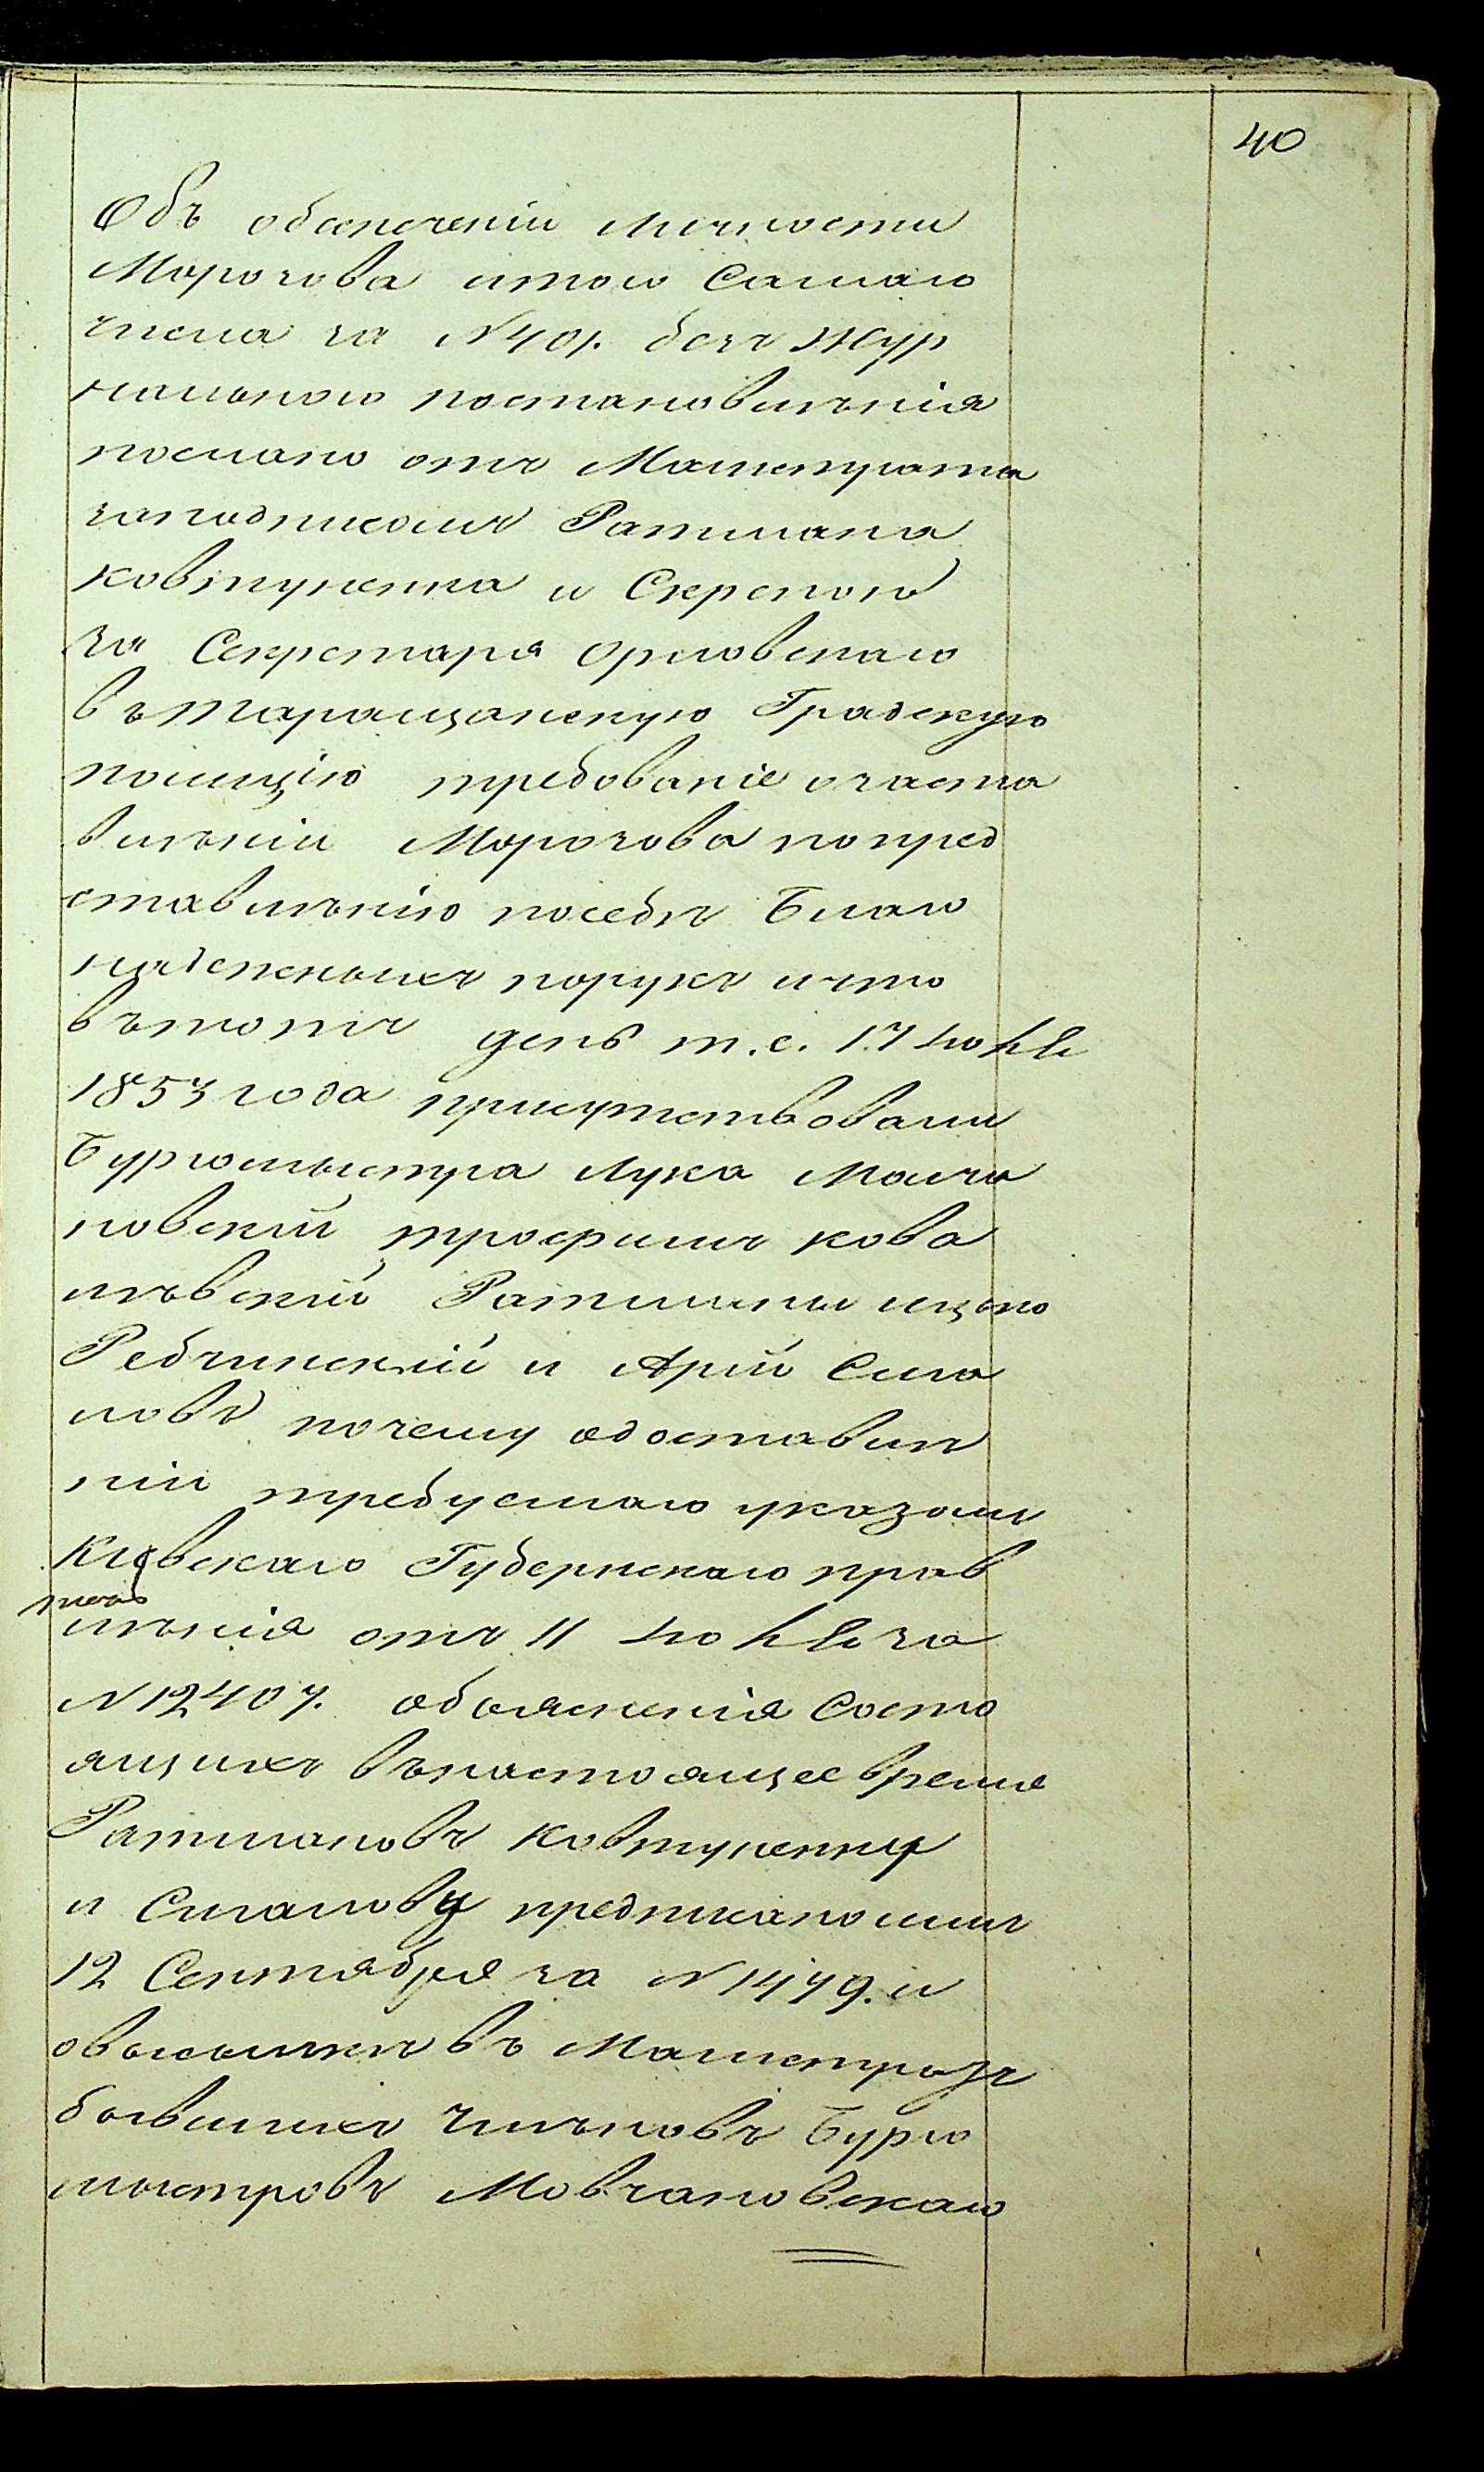 40
Объ обезпеченіи личности
Морозова итого Самаго
числа за №401. безъ Жур
нальнаго постановленія
послано отъ Магистрата
заподписомъ Ратмана
Ковтуненка и Скрепою
за Секретаря Орловскаго
въ Таращанскую Градскую
полицію требованіе о заста
вленіи Морозова попред
ставленію посебѣ Благо
надежныхъ порукъ ичто
въ тотъ день т.е. 17 Юня
1853 года присутствовали
Бургомыстра Лука Молча
новскій Трофимъ Кова
левскій Ратманы ицько
Ребчинскій и Арій Сига
ловъ почему одоставле
ніи требуемаго указомъ
Кіевскаго Губернскаго прав
ленія отъ 11 Юня за
№12407. объясненія Состо
ящихъ внастоящее время
Ратмановъ Ковтуненку
и Сигалову предписаноимъ
12 Сентября за №1479. и
овысылкѣ въ Магистратъ
бывшихъ Членовъ Бурго
мыстровъ Мовчановскаго